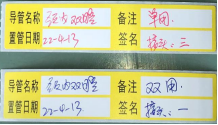 导管名称 颈内双腔 备注 单用.
置管日期 22-4-13 签名 三
导管名称 颈内双腔 备注 双用.
置管日期 22-4-13 签名 一